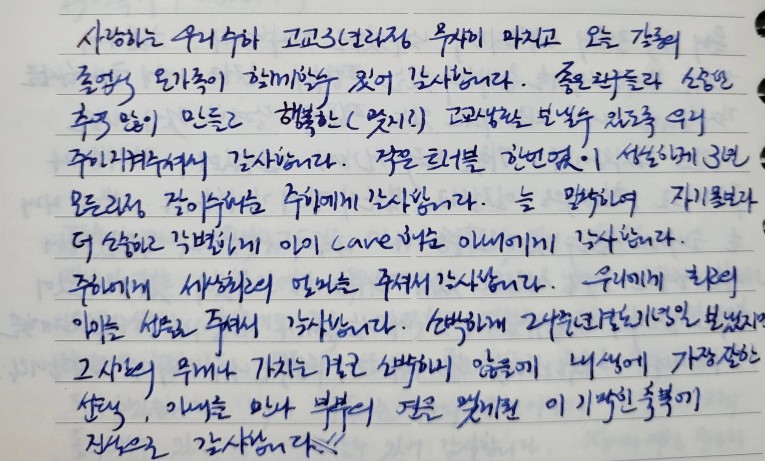 사랑하는 우리 주하 고교3년과정 무사히 마치고 오늘 감동의
졸업식 온가족이 함께할수 있어 감사합니다. 좋은친구들과 소중한
추억 많이 만들고 행복한( 멋지고) 고교생활 보낼수 있도록 우리
주하지켜주셔서 감사합니다. 작은 트러블 한번 없이 성실하게 3년
모든과정 잘이수해준 주하에게 감사합니다. 늘 말씀하며 자기몸보다
더 소중하고 각별하게 아이 care 해준 아내에게 감사합니다.
주하에게 세상최고의 엄마를 주셔서 감사합니다. 우리에게 최고의
아이를 선물로 주셔서 감사합니다. 소박하게 24주년결혼기념일 보냈지만
그 시간의 무게나 가치는결코 소박하지 않음에 내생에 가장잘한
선택, 아내를 만나 부부의 연을 맺게된 이 기막힌축복에
진심으로 감사합니다!!